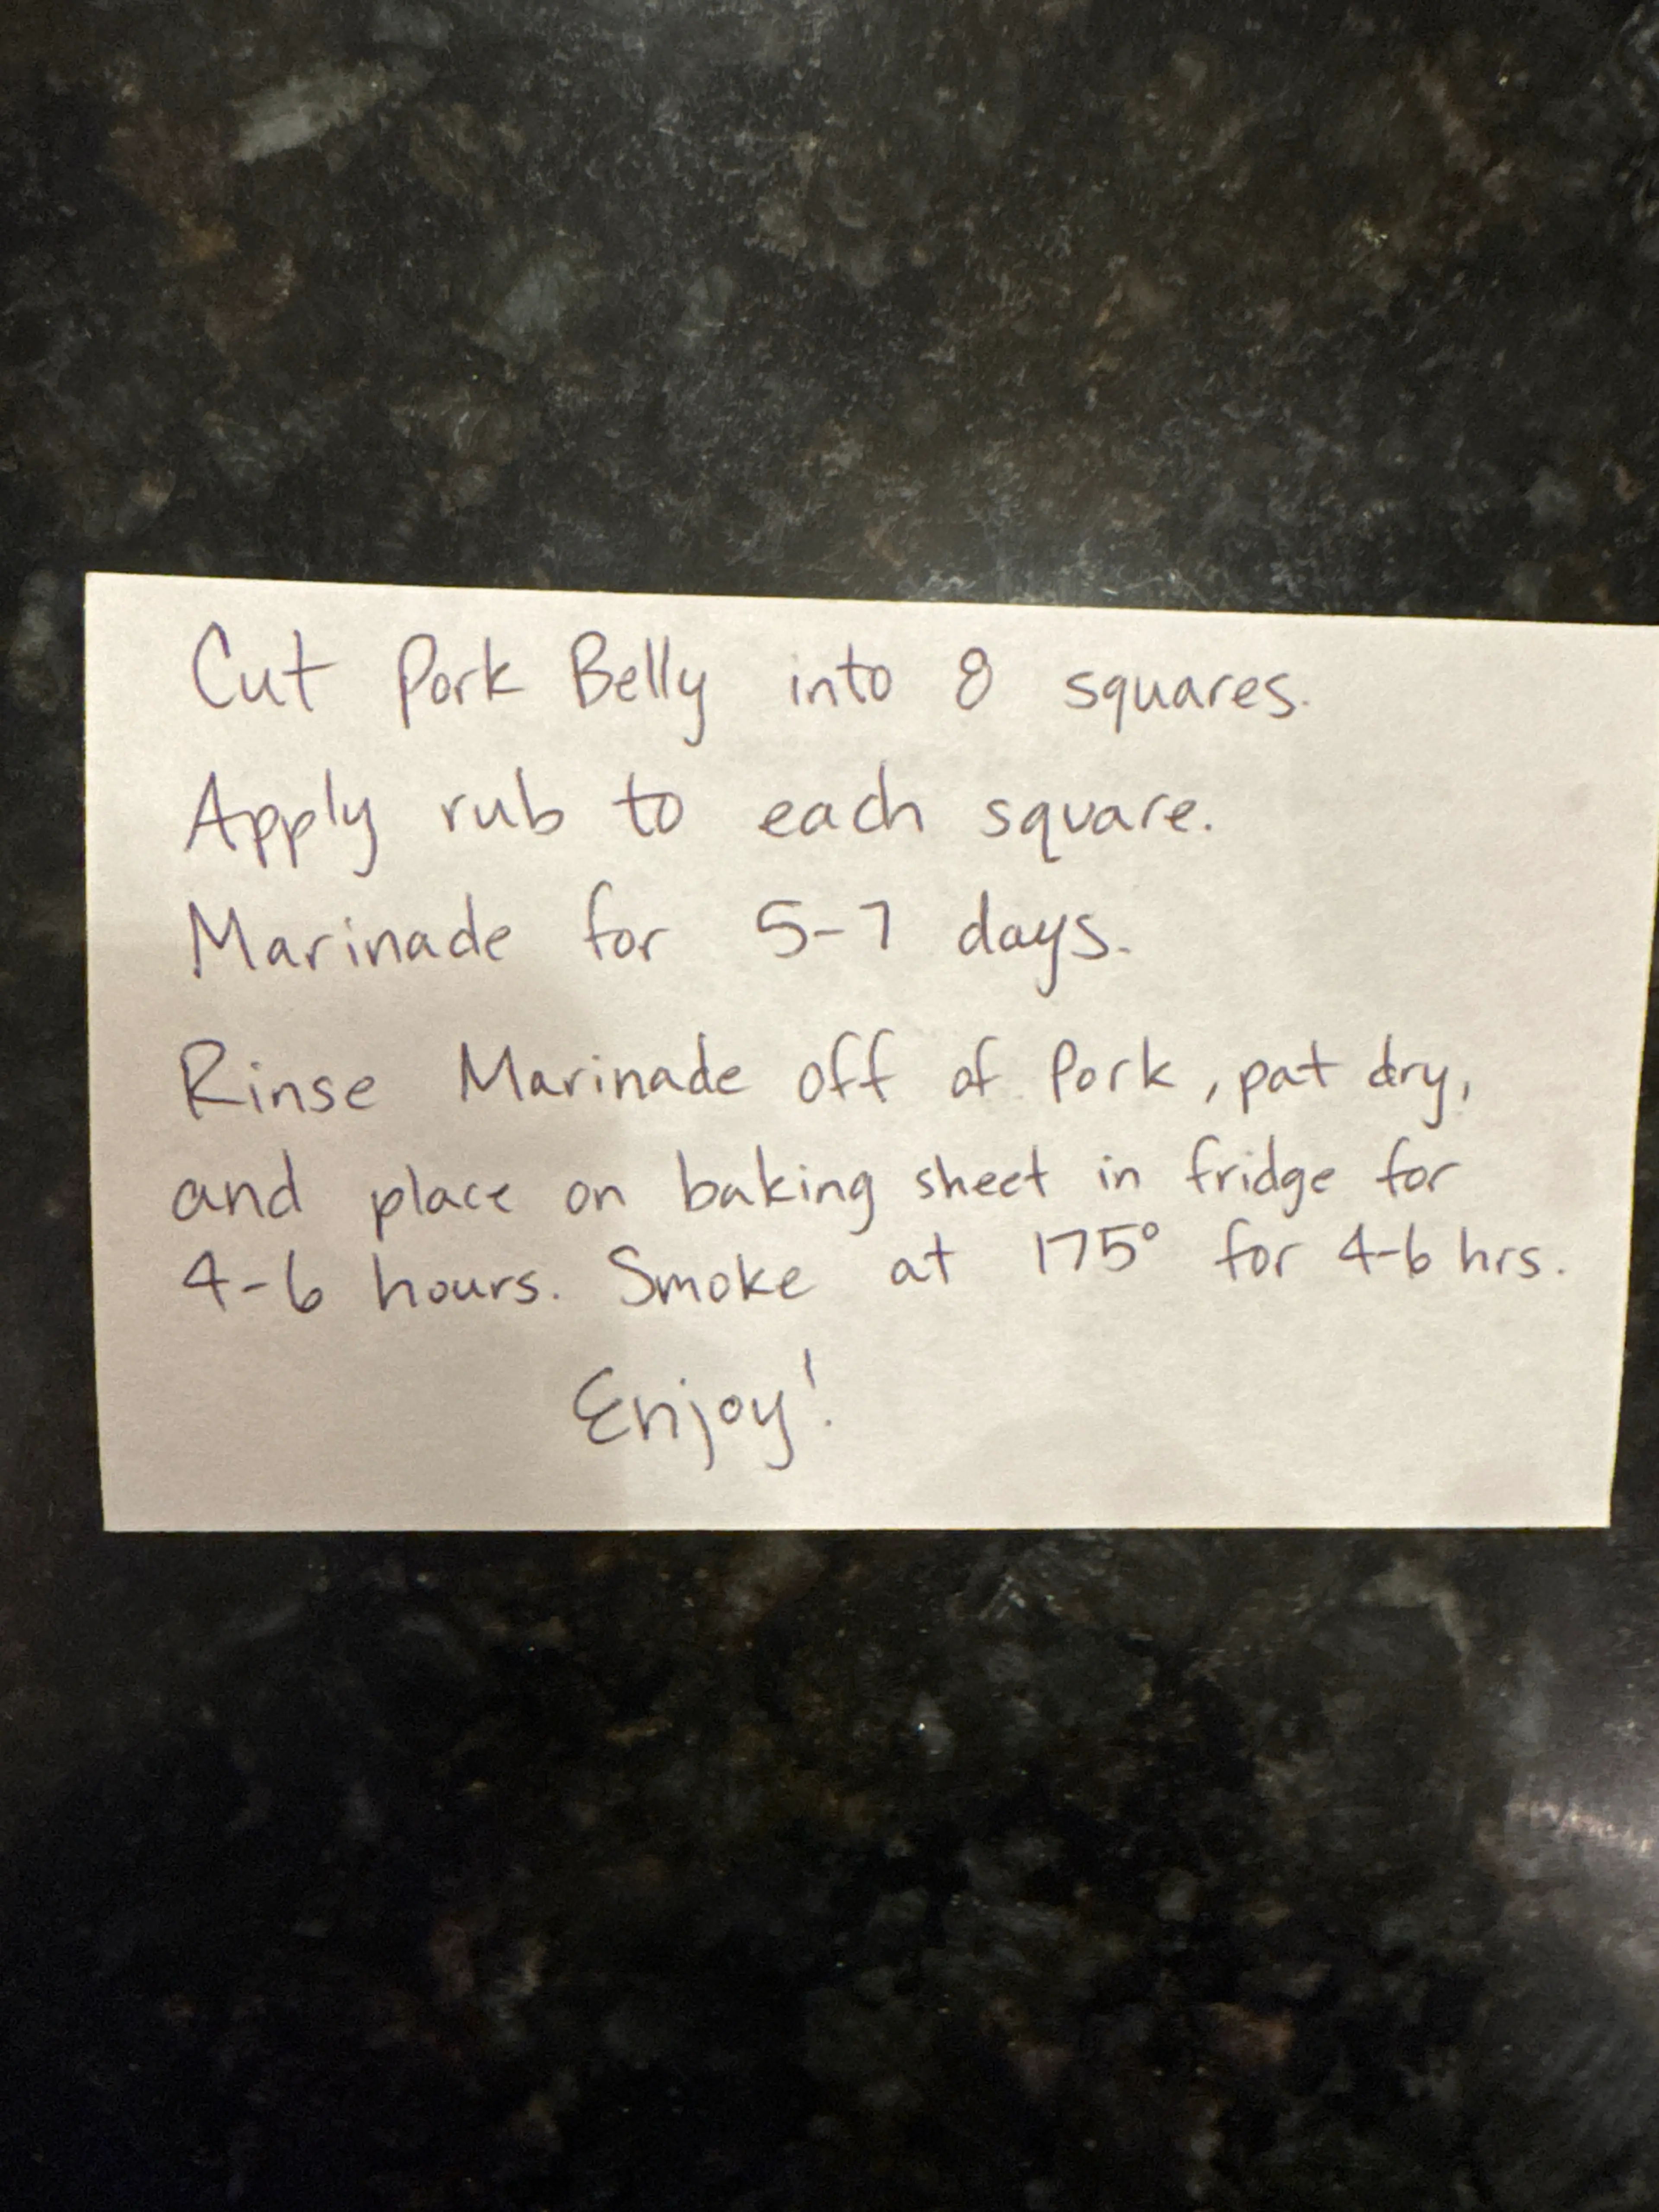 Cut Pork Belly into 8 squares.
Apply rub to each square.
Marinade for 5-7 days.
Rinse Marinade off of Pork, pat dry,
and place on baking sheet in fridge for
4-6 hours. Smoke at 175° for 4-6 hrs.
Enjoy!